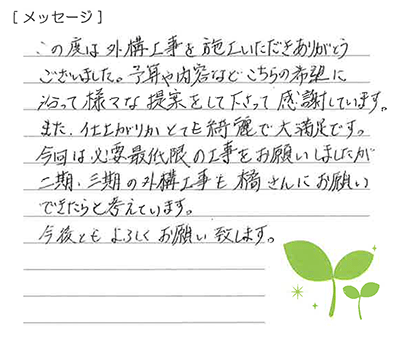 [メッセージ]
この度は外構工事を施工いただきありがとう
ございました。予算や内容などこちらの希望に
沿って様々な提案をして下さって感謝しています。
また、仕上がりがとても綺麗で大満足です。
今回は必要最低限の工事をお願いしましたが
二期・三期の外構工事も橘さんにお願い
できたらと考えています。
今後ともよろしくお願い致します。